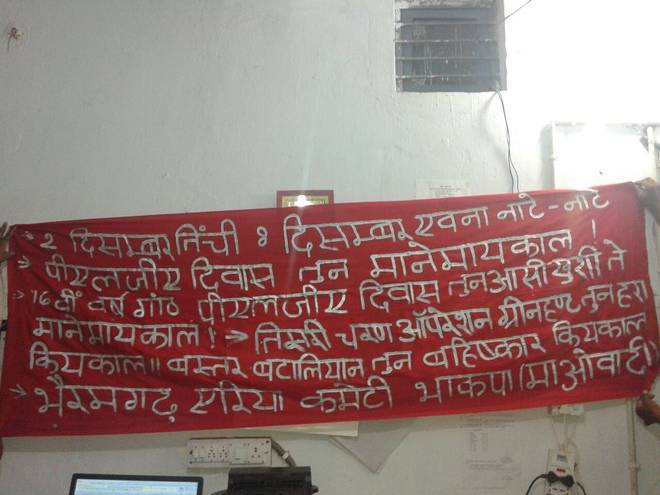 → २ दिसम्बर निंची ८ दिसम्बर रवना नाटे-नाट
→ पीएलजीए दिवास तुन मानेमायकाल !
→ 16 वी वर्ष गांठ पीएलजीए दिवास तुन आसी खुशी ते
मानेमायकाल ! → तिसरी चरण ऑपरेशन ग्रीनहण्ट तुन हरा
कियकाल ॥ बस्तर बटालियान तुन बहिष्कार कियकाल
→ भैरमगढ़ एरिया कमेटी भाकपा (माओवादी)